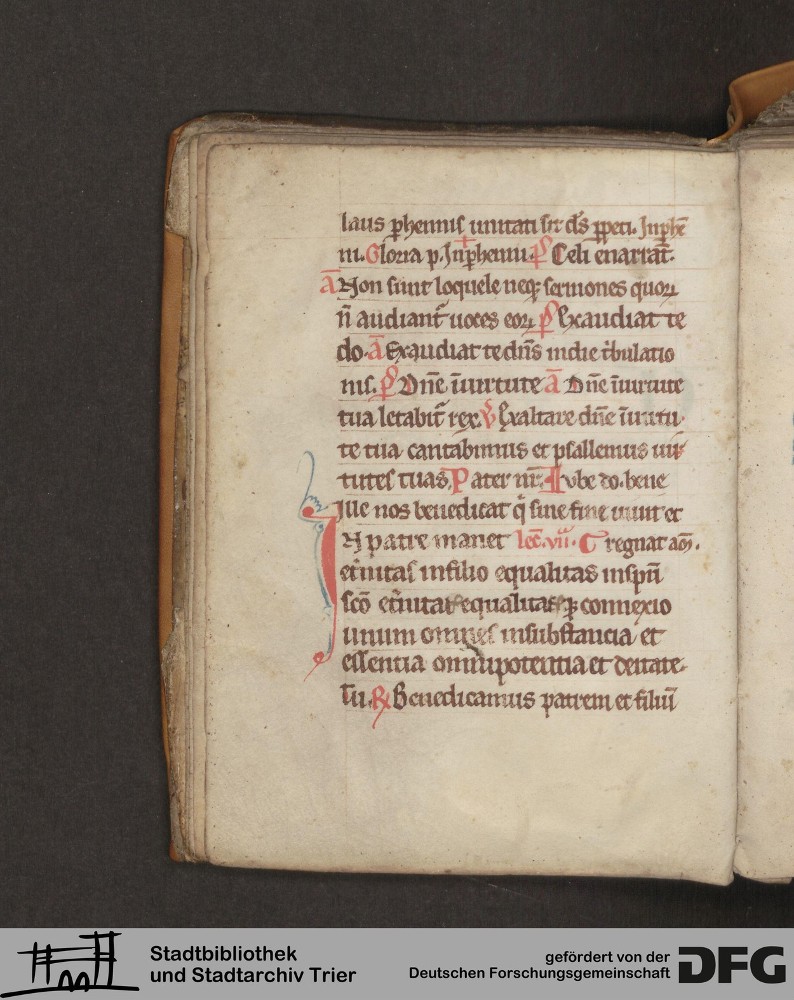 laus ꝑhennis unitati sit dſ̄ ꝑpeti. Inꝑhē
ni. Gloria p. Inꝑhenni. p̄s Celi enarrāt.
Ā Non sunt loquele neqꝫ sermones quoꝝ
n̄ audiant᷑ uoces eoꝝ p̄s Exaudiat te
do. Ā Exaudiat te dn̄s in die t̄bulatio
nis. p̄s Dn̄e ī uirtute Ā Dn̄e ī uirtute
tua letabit᷑ rex. v̄ Exaltare dn̄e ī uirtu
te tua cantabimus et psallemus uir
tutes tuas. Pater nr̄. Iube do. bene
Ille nos benedicat q̄ sine fine uiuit et
IN patre manet lec̄. vii. C regnat am̄.
et̄nitas in filio equalitas in spū
sc̄o et̄nitatis equalitatisqꝫ connexio
unum omnes in substancia et
essentia omnipotentia et deitate
sūt. ℟ Benedicamus patrem et filiū
Stadtbibliothek
und Stadtarchiv Trier
gefördert von der
Deutschen Forschungsgemeinschaft
DFG